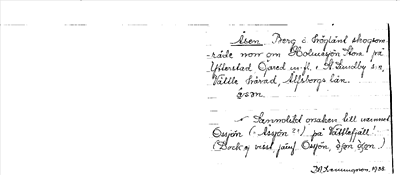 Åsen. Berg i höglänt skogsom-
råde norr om Holmasjön Stora på
Ytterstad Öjared m.fl. i St. Lundby s:n,
Vättle härad, Älfsborgs län.
åsən.
Sannolikt orsaken till namnet
Ossjön (= Åsjön ?) på Vättlefjäll!
(Dock ej visst, jämf Ossjön,
1938